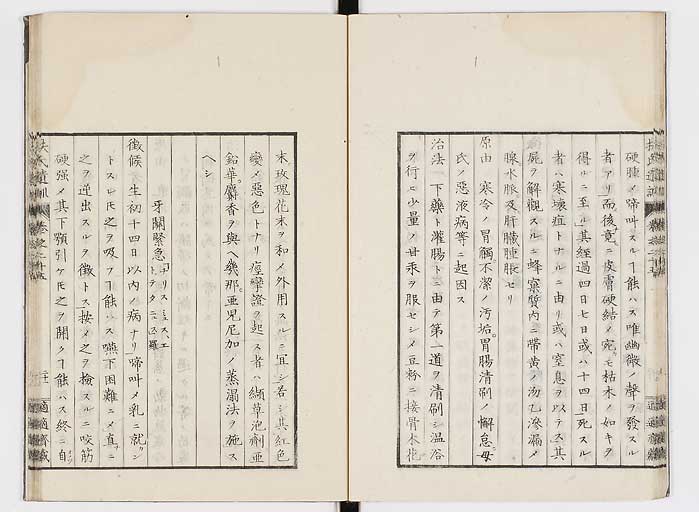 硬腫メ啼叫スルヿ能ハス唯幽微ノ聲ヲ發スル
者アリ而後竟ニ皮膚硬結メ宛モ枯木ノ如キヲ
得ルニ至ル其經過四日七日或ハ十四日死スル
者ハ寒壊症トナルニ由リ或ハ窒息ヲ以テス其
屍ヲ解觀スルニ蜂窠質内ニ帶黄ノ液滲漏メ
腺水脈及肝臓腫脹セリ
原由 寒冷ノ胃觸不潔ノ汚垢胃腸清刷ノ懈怠母
氏ノ惡液病等ニ起因ス
治法 下藥ト灌腸トニ由テ第一道ヲ清刷シ温浴
ヲ行ヒ少量ノ甘汞ヲ服セシメ豆粉ニ接骨木花
末玫瑰花末ヲ和メ外用スルニ宜シ若シ其紅色
變メ惡色トナリ痙攣證ヲ起ス者ハ纈草泡劑亜
鉛華麝香ヲ與ヘ幾那亜児尼加ノ蒸漏法ヲ施ス
ヘシ
牙關緊急
徴候 生初十四日以内ノ病ナリ啼叫メ乳ニ就ン
トスレ𪜈之ヲ吸フヿ能ハス嚥下困難ニメ直ニ
之ヲ逆出スルヲ徴トス按メ之ヲ檢スルニ咬筋
硬强メ其下顎引ケ𪜈之ヲ開クヿ能ハス終ニ自
扶氏遺訓
卷之二十五
適適齋藏